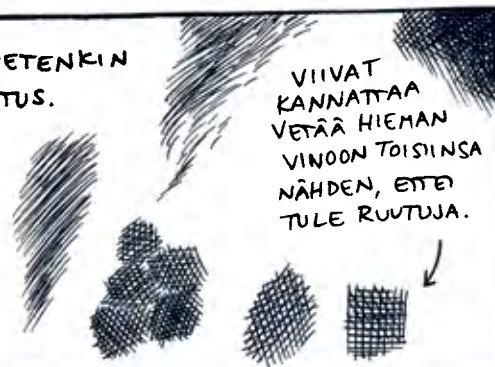 ETENKIN
TUS.
VIIVAT
KANNATTAA
VETÄÄ HIEMAN
VINOON TOISIINSA
NÄHDEN, ETTEI
TULE RUUTUJA.